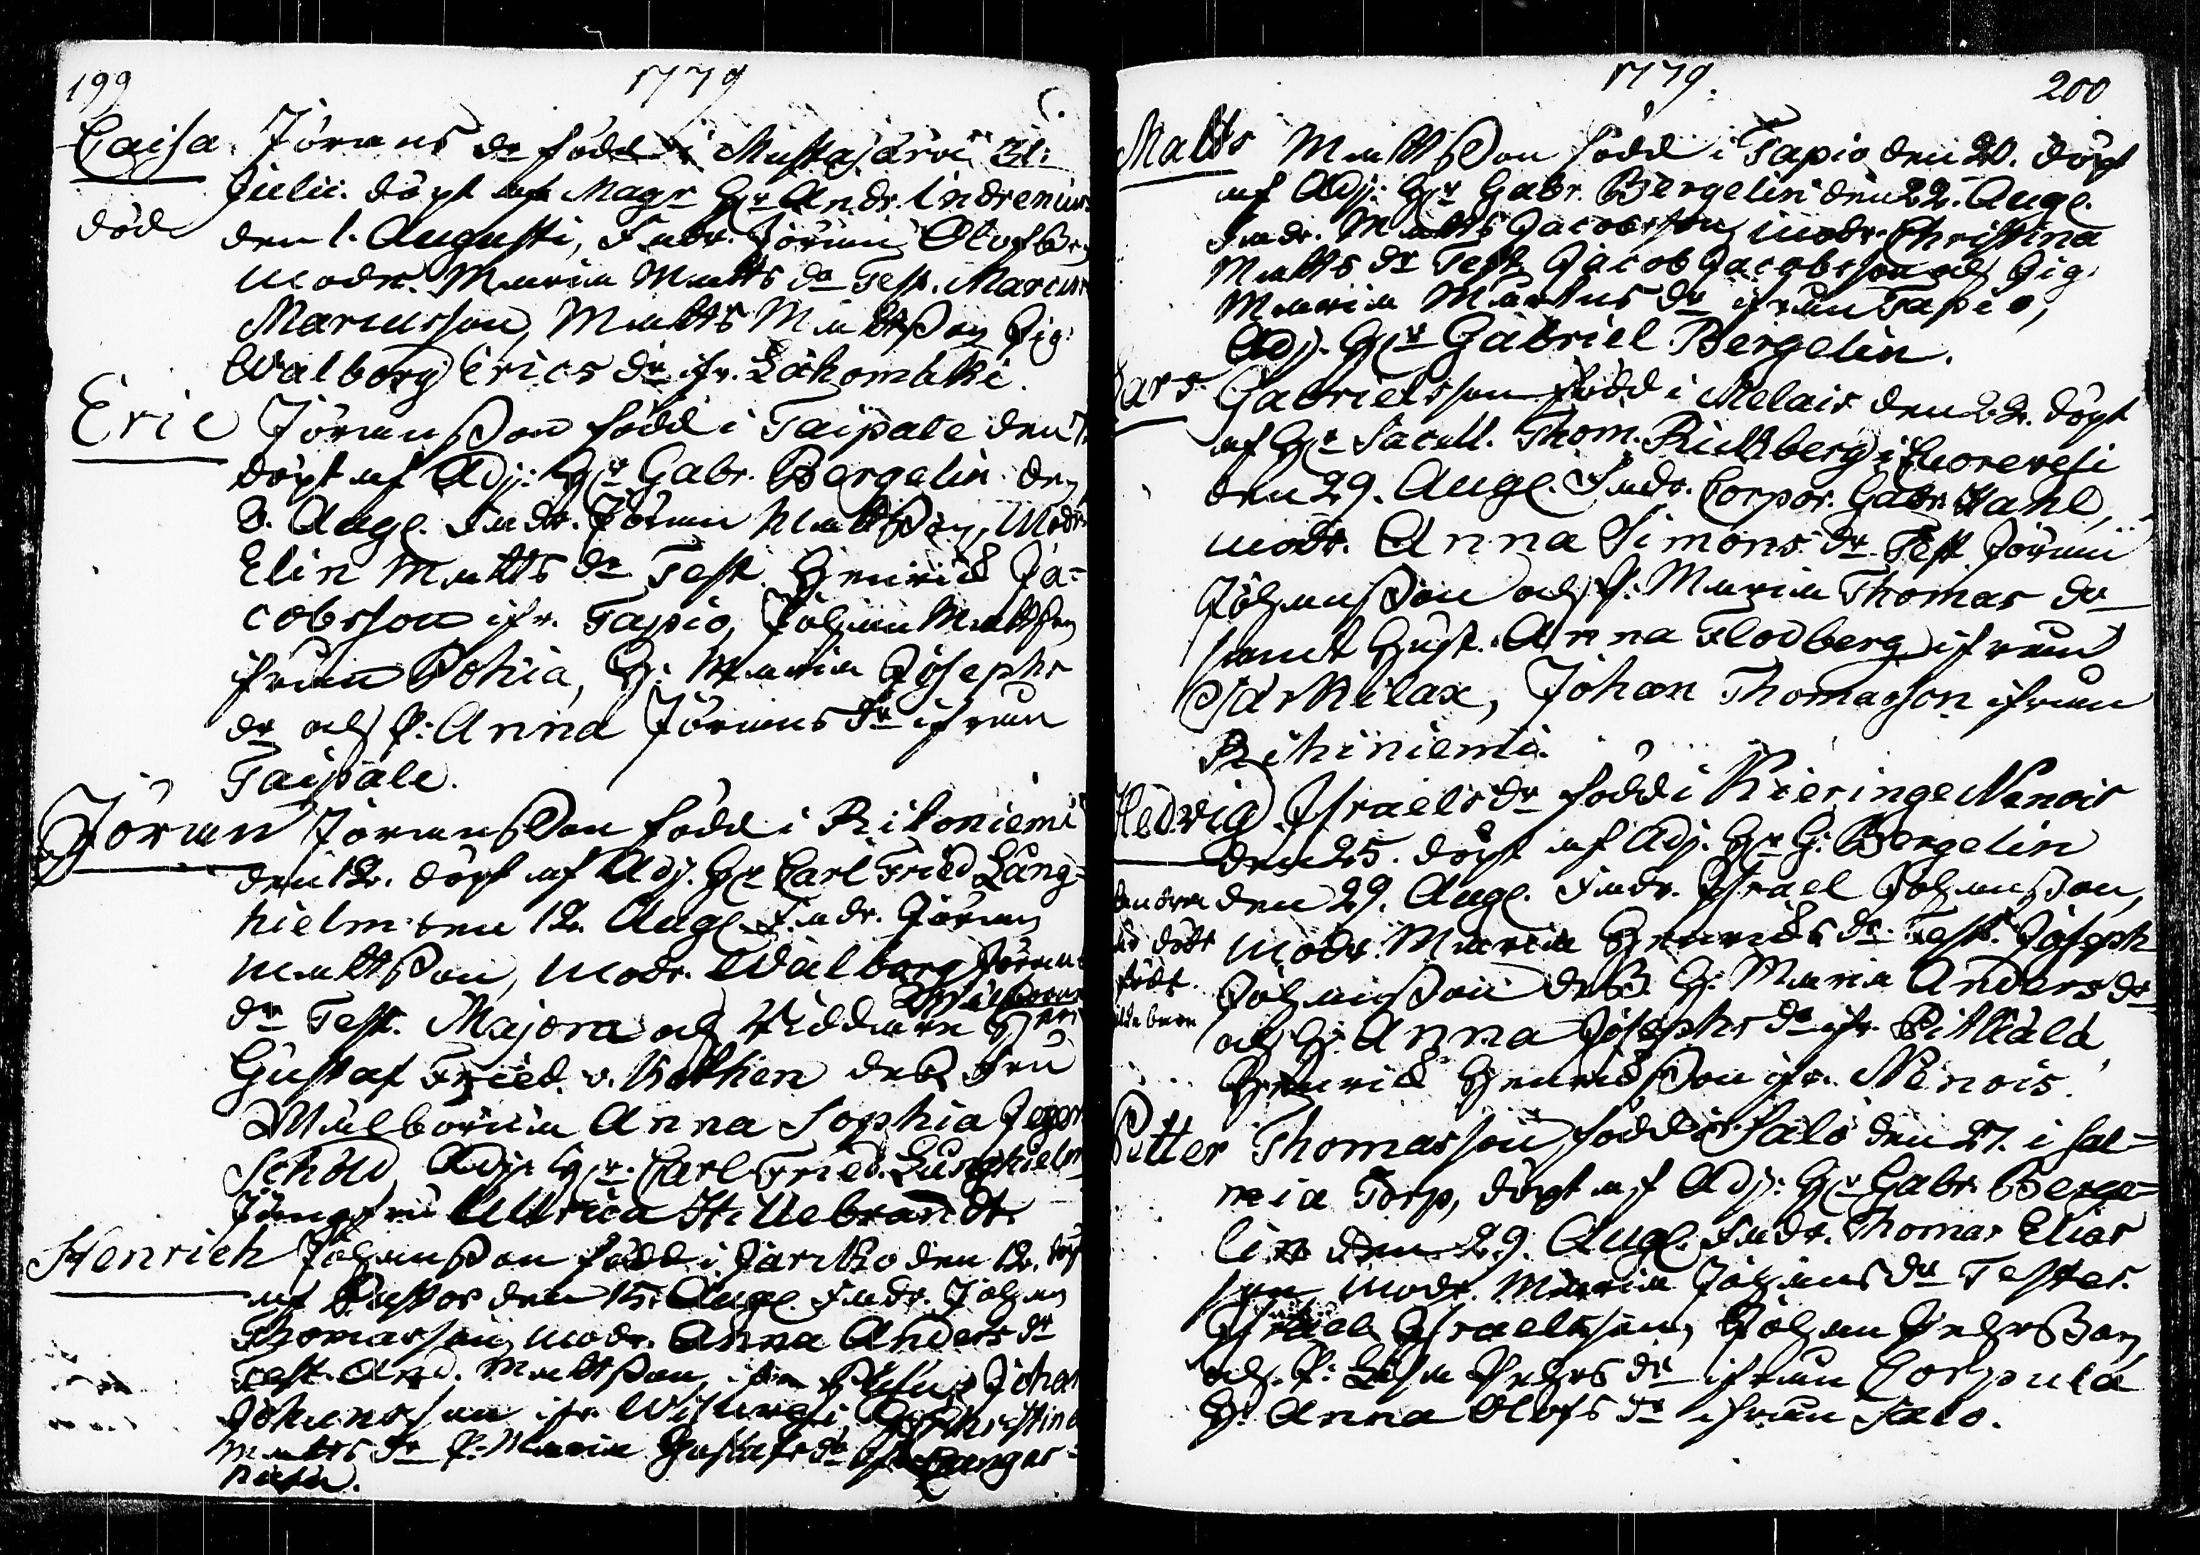 199
1779
Caisa Jörans dr född i Mustajärvi 31.
Julii. döpt af Magr Hr Andr. Indrenius
död
den 1. Augusti, Fadr. Jöran Olofsson
Modr. Maria Matts dr Test. Marcus
Marcusson, Matts Mattsson Pig.
Walborg Erics dr ifr.
Eric Jöransson född i Taipale den
döpt af Adj. Hr Gabr. Bergelin den
8. Aug. Fadr. Jöran Mattsson, Modr.
Elin Matts dr Test. Henrich Ja=
cobsson ifr. Tapio, Johan Mattsson
ifrån Pohia, H. Maria Josephs
dr och P. Anna Jörans dr ifrån
Taipale.
Jöran Jöransson född i Rikoniemi
den 12. döpt af Adj. Hr Carl Fried Lång=
hielm den 12. Aug. Fadr. Jöran
Mattsson, Modr. Walborg Jörans
dr Test. Majoren och Riddaren
Gustaf Fried. v. Kothen dess Fru
Anna Sophia Jeger
schöld Adj. Hr. Carl Fried. Langhielm
Jungfru Ullrica Hillebrandt.
Henrich Johansson född i Jarkko den 12. döpt
af Pastor den 15. Aug. Fadr. Johan
Thomasson, modr. Anna Anders dr
Test. And. Mattsson Johan
Johansson ifr. Christina
Matts dr P. Maria Gustafs dr ifr. Kangas=
niemi.
1779.
200
Matts Mattsson född i Tapio den 20. döpt
af Adj. Hr Gabr. Bergelin den 22. Aug.
Fadr. Matts Jacobsson, modr. Christina
Matts dr Test. Jacob Jacobsson och Pig.
Maria Martins dr ifrån Tapio,
Adj. Hr Gabriel Bergelin.
Lars Gabrielsson född i Melais den 22. döpt
af Hr Sacell. Thom. i Kuorevesi
den 29. Aug. Fadr. Corpor. Gabr. Stahl,
modr. Anna Simons dr Test. Jöran
Johansson och P. Maria Thomas dr
samt Hust. Anna Flodberg ifrån
Särkilax, Johan Thomasson ifrån
Rihiniemi.
Hedvig Israels dr född i Kieringe Nenois
den 25. döpt af Adj. Hr G. Bergelin
den 29. Aug. Fadr. Israel Johansson,
modr. Maria Henrichs dr Test. Joseph
Johansson dess H. Maria Anders dr
och H. Anna Josephs dr ifr. Pitkälä
Henrich Henrichsson ifr. Nenois.
Petter Thomasson född i Salo den 27. i Sal=
mia Torp, döpt af Adj. Hr Gabr. Berge=
lin den 29. Aug. Fadr. Thomas Elias
son modr. Maria Johans dr Testes.
Israel Israelsson, Johan Pehrsson
och P. Lisa Pehrs dr ifrån Corpula
H. Anna Olofs dr ifrån Salo.